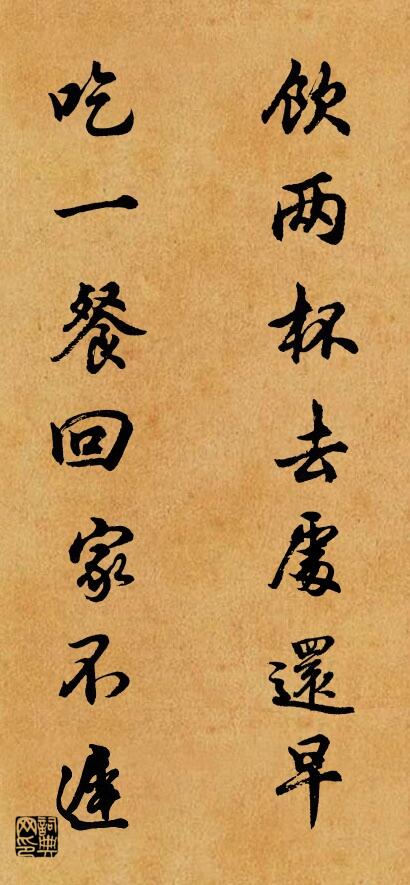 飲两杯去處還早
吃一餐回家不遲
詞典网印